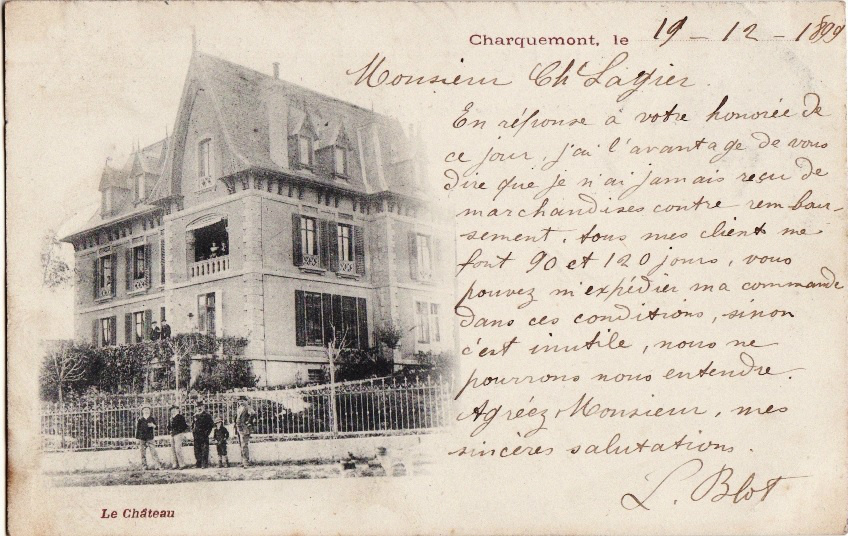 Charquemont, le 19 - 12 - 1899
Monsieur Ch. Lagier.
En réponse à votre honorée de
ce jour, j'ai l'avantage de vous
dire que je n'ai jamais reçu de
marchandises contre rembour-
sement. tous mes client me
font 90 et 120 jours, vous
pouvez m'expédier ma commande
dans ces conditions, sinon
c'est inutile, nous ne
pourrons nous entendre.
Agréez Monsieur, mes
sincères salutations.
L. Blot
Le Château